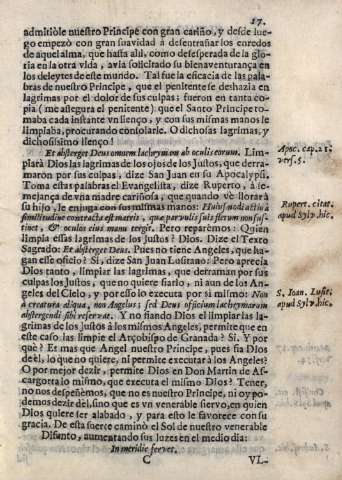 17.
admitiòle nuestro Principe con gran cariño, y desde lue-
go empezò con gran suavidad à desentrañar los enredos
de aquel alma, que hasta alli, como desesperada de la glo-
ria en la otra vida, avia solicitado su bienaventurança en
los deleytes de este mundo. Tal fue la eficacia de las pala-
bras de nuestro Principe, que el penitente se deshazia en
lagrimas por el dolor de sus culpas: fueron en tanta co-
pia (me assegura el penitente) que el Santo Principe to-
maba cada instante vn lienço, y con sus mismas manos le
limpiaba, procurando consolarle. O dichosas lagrimas, y
dichosissimo lienço!
Et absterget Deus omnem lachrymam ab oculis eorum. Lim-
piarà Dios las lagrimas de los ojos de los Justos, que derra-
maron por sus culpas, dize San Juan en su Apocalypsi.
Toma estas palabras el Evangelista, dize Ruperto, à se-
mejança de vna madre cariñosa, que quando vè llorar à
su hijo, le enjuga con sus mismas manos: Huiusmodi actio
similitudine contracta est matris, quæ parvulis suis flerum non sus-
tinet, & oculos eius manu tergit. Pero reparèmos: Quien
limpia essas lagrimas de los Justos? Dios. Dize el Texto
Sagrado: Et absterget Deus. Pues no tiene Angeles, que ha-
gan esse oficio? Si, dize San Juan Lusitano: Pero aprecia
Dios tanto, limpiar las lagrimas, que derraman por sus
culpas los Justos, que no quiere fiarlo, ni aun de los An-
geles del Cielo, y por esso lo executa por si mismo: Non
à creatura aliqua, non Angelus; sed Deus officium lachrymarum
abstergendi sibi reservat. Y no fiando Dios el limpiar las la-
grimas de los Justos à los mismos Angeles, permite que en
este caso las limpie el Arçobispo de Granada? Si. Y por
què? Es mas que Angel nuestro Principe, pues fia Dios
de èl, lo que no quiere, ni permite executar à los Angeles?
O por mejor dezir, permite Dios en Don Martin de As-
cargorta lo mismo, que executa el mismo Dios? Tener,
no nos despeñemos, que no es nuestro Principe, ni oy po-
demos dezir del, sino que es vn venerable siervo, en quien
Dios quiere ser alabado, y para esto le favorece con su
gracia. De esta suerte caminò el Sol de nuestro venerable
Difunto, aumentando sus luzes en el medio dia:
In meridie fervet.
C VI.
Apoc. cap. 21.
vers. 5.
Rupert. citat.
apud Sylv. hic.
S. Ioan. Lusit.
apud Sylv. hic.